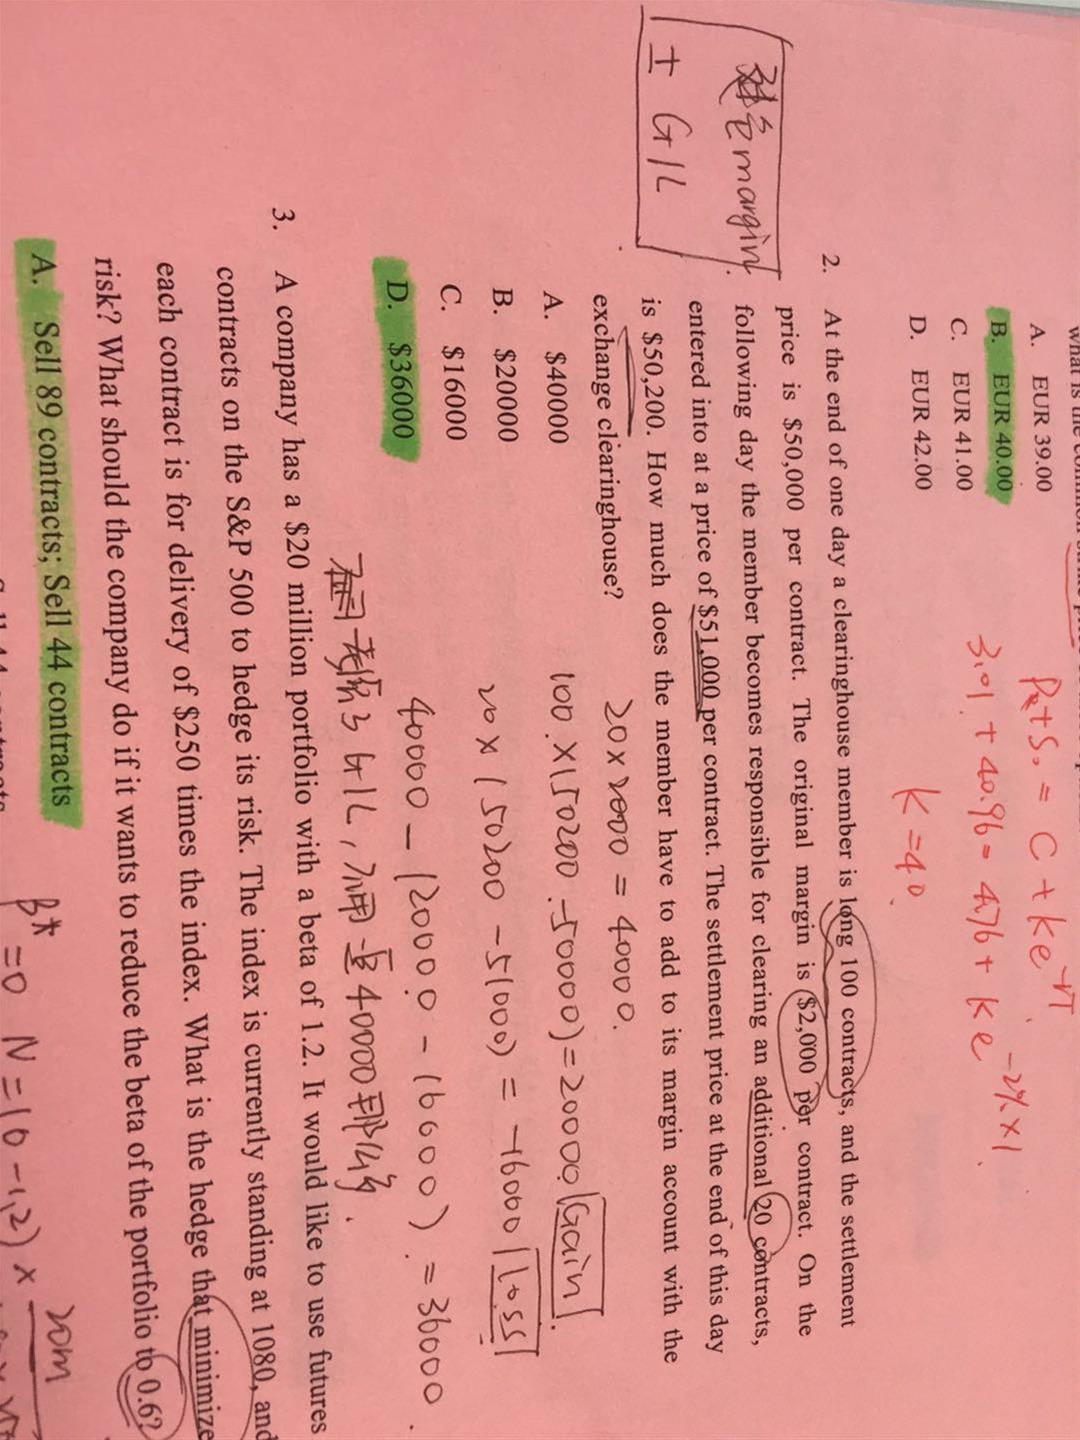 what is the
A. EUR 39.00
B. EUR 40.00
C. EUR 41.00
D. EUR 42.00
P+S₀ = C + ke^-rT
3.01 + 40.96 = 4.76 + ke^-2%×1
K=40.
2. At the end of one day a clearinghouse member is long 100 contracts, and the settlement
price is $50,000 per contract. The original margin is $2,000 per contract. On the
following day the member becomes responsible for clearing an additional 20 contracts,
entered into at a price of $51,000 per contract. The settlement price at the end of this day
is $50,200. How much does the member have to add to its margin account with the
exchange clearinghouse?
margin
± G/L
A. $40000
B. $20000
C. $16000
D. $36000
20×2000 = 40000.
100×(50200-50000)=20000 Gain.
20×(50200-51000) = -16000 loss
40000-(20000-16000)=36000.
3. A company has a $20 million portfolio with a beta of 1.2. It would like to use futures
contracts on the S&P 500 to hedge its risk. The index is currently standing at 1080, and
each contract is for delivery of $250 times the index. What is the hedge that minimize
risk? What should the company do if it wants to reduce the beta of the portfolio to 0.6?
A. Sell 89 contracts; Sell 44 contracts
β*=0 N=(0-1.2)×
20m